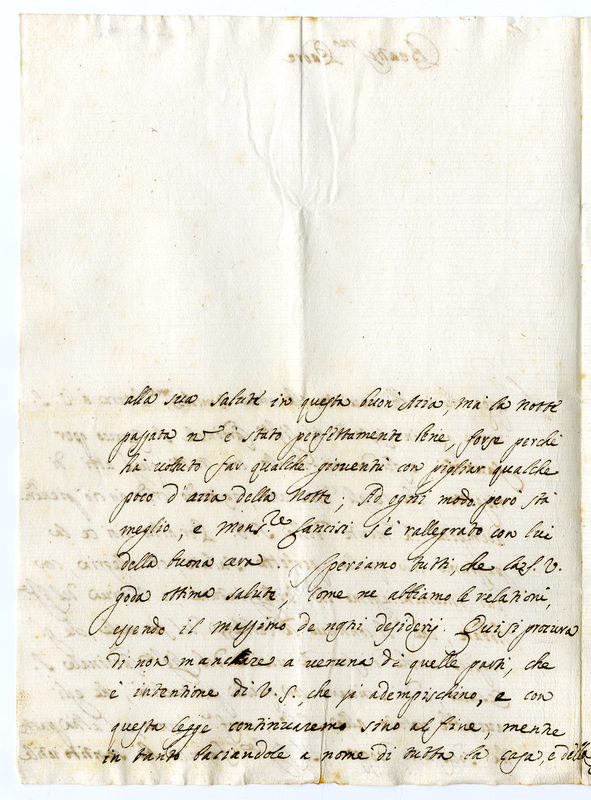 alla sua salute in questa buon'Aria, mà la notte
passata nº è stato perfettamente bene, forse perche
hà voluto far qualche gioventù con pigliar qualche
poco d'aria della Notte; Ad ogni modo però stà
meglio, e Mons.re Lancisi s'è rallegrato con lui
della buona cera Speriamo tutti, che V.
goda ottima salute, come ne abbiamo le relationi,
essendo il massimo de nri desiderij. Qui si procura
di non manchare a veruna di quelle parti, che
è intentione di V. S., che si adempischino, e con
questa legge continuaremo sino al fine, mentre
in tanto baciandole a nome di tutta la casa, e della